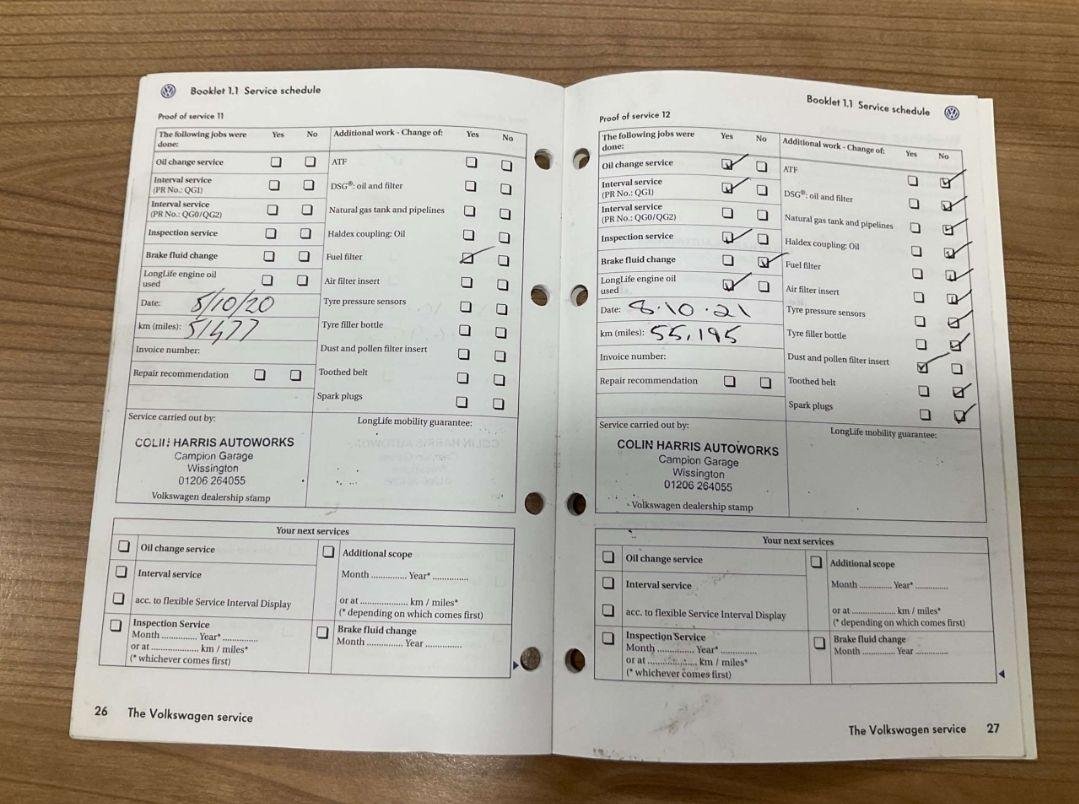 Booklet 1.1 Service schedule
Proof of service 11
The following jobs were done: Yes No Additional work - Change of: Yes No
Oil change service ATF
Interval service (PR No.: QG1) DSG®: oil and filter
Interval service (PR No.: QG0/QG2) Natural gas tank and pipelines
Inspection service Haldex coupling: Oil
Brake fluid change Fuel filter
LongLife engine oil used Air filter insert
Date: 5/10/20 Tyre pressure sensors
km (miles): 51477 Tyre filler bottle
Invoice number: Dust and pollen filter insert
Repair recommendation Toothed belt
Spark plugs
Service carried out by: LongLife mobility guarantee:
COLIN HARRIS AUTOWORKS
Campion Garage
Wissington
01206 264055
Volkswagen dealership stamp
Your next services
Oil change service Additional scope
Interval service Month .............. Year* ..............
acc. to flexible Service Interval Display or at ................... km / miles*
(* depending on which comes first)
Inspection Service Brake fluid change
Month .............. Year* .............. Month .............. Year ..............
or at ................... km / miles*
(* whichever comes first)
26 The Volkswagen service
Booklet 1.1 Service schedule
Proof of service 12
The following jobs were done: Yes No Additional work - Change of: Yes No
Oil change service ATF
Interval service (PR No.: QG1) DSG®: oil and filter
Interval service (PR No.: QG0/QG2) Natural gas tank and pipelines
Inspection service Haldex coupling: Oil
Brake fluid change Fuel filter
LongLife engine oil used Air filter insert
Date: 8.10.21 Tyre pressure sensors
km (miles): 55,195 Tyre filler bottle
Invoice number: Dust and pollen filter insert
Repair recommendation Toothed belt
Spark plugs
Service carried out by: LongLife mobility guarantee:
COLIN HARRIS AUTOWORKS
Campion Garage
Wissington
01206 264055
Volkswagen dealership stamp
Your next services
Oil change service Additional scope
Interval service Month .............. Year* ..............
acc. to flexible Service Interval Display or at ................... km / miles*
(* depending on which comes first)
Inspection Service Brake fluid change
Month .............. Year* .............. Month .............. Year ..............
or at ................... km / miles*
(* whichever comes first)
The Volkswagen service 27